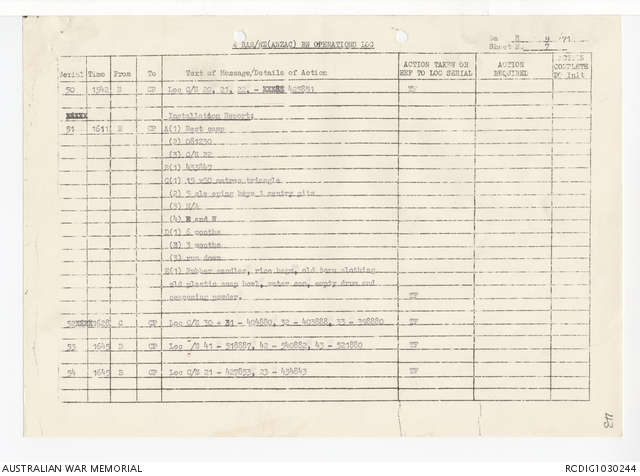 4 RAR/NZ(ANZAC) BN OPERATIONS LOG
Da 8 9 71
Sheet N. 7
Serial Time From To Text of Message/Details of Action ACTION TAKEN OR REF TO LOG SERIAL ACTION REQUIRED ACTION COMPLETE DO Init
50 1542 B CP Loc C/S 20, 21, 22, - 423851 TF
Installation Report:
51 1611 B CP A(1) Rest camp
(2) 081230
(3) C/S 22
B(1) 433847
C(1) 15 x50 metres triangle
(2) 5 sleeping bays 1 sentry pits
(3) N/A
(4) E and W
D(1) 6 months
(2) 3 months
(3) run down
E(1) Rubber sandles, rice bags, old torn clothing
old plastic soap bowl, water can, empty drum and
seasoning powder. TF
52 1628 C CP Loc C/S 30 + 31 - 404880, 32 - 403888, 33 - 398880 TF
53 1645 D CP Loc C/S 41 - 518887, 42 - 540882, 43 - 521880 TF
54 1645 B CP Loc C/S 21 - 427853, 23 - 434843 TF
AUSTRALIAN WAR MEMORIAL
RCDIG1030244